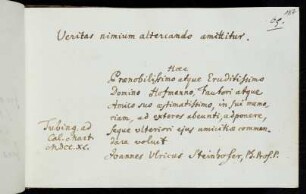 157
69.
Veritas nimium altercando amittitur.
Haec
Prænobilissimo atque Eruditissimo
Domino Hofmanno, Fautori atque
Amico suo æstimatissimo, in sui memo-
riam, ad exteros abeunti, adponere,
seque ulteriori ejus amicitiæ commen-
dare voluit
Joannes Ulricus Steinhofer, Ph. Prof. P.
Tubing. ad
Cal. Mart.
MDCC.XC.